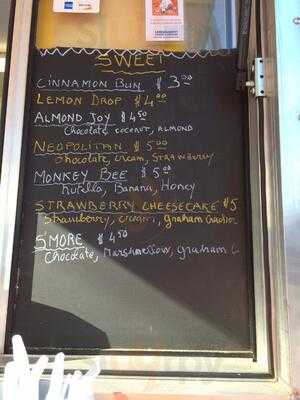 SWEET
CINNAMON BUN $3.00
LEMON DROP $4.00
ALMOND JOY $4.50
Chocolate, coconut, ALMOND
NEOPOLITAN $5.00
chocolate, cream, STRAWBERRY
MONKEY BEE $5.00
Nutella, Banana, Honey
STRAWBERRY CHEESECAKE $5
Strawberry, cream, graham Cracker
S'MORE $4.50
Chocolate, Marshmellow, graham C